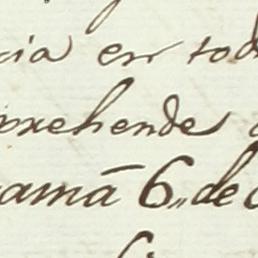 cia en tod
prehende
amã 6,, de